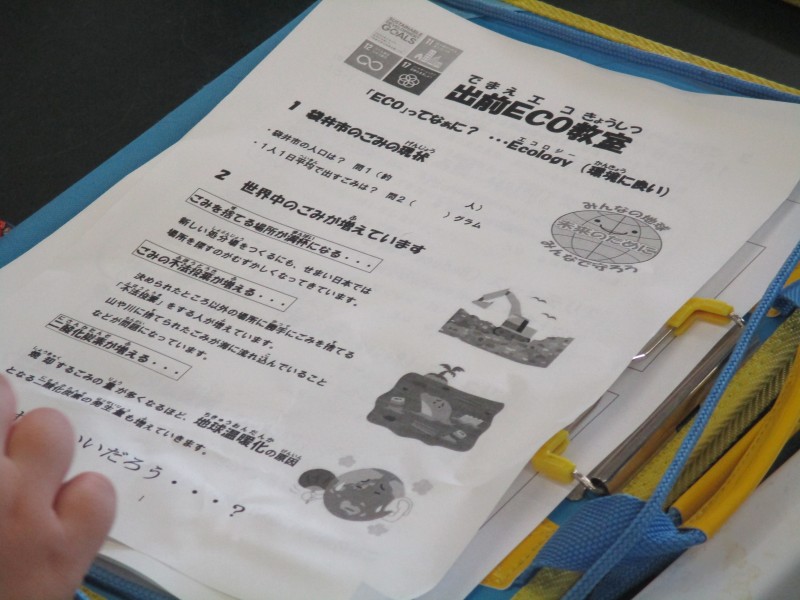 SUSTAINABLE
GOALS
11
12
17
でまえエコきょうしつ
出前ECO教室
「ECO」ってなぁに? ・・・Ecology(環境に良い)
エコロジー
かんきょう
1 袋井市のごみの現状
げんじょう
・袋井市の人口は? 問1(約 人)
・1人1日平均で出すごみは? 問2( )グラム
2 世界中のごみが増えています
ごみを捨てる場所が満杯になる・・・
新しい処分場をつくるにも、せまい日本では
場所を探すのがむずかしくなってきています。
ごみの不法投棄が増える・・・
決められたところ以外の場所に勝手にごみを捨てる
「不法投棄」をする人が増えています。
山や川に捨てられたごみが海に流れ込んでいること
などが問題になっています。
二酸化炭素が増える・・・
焼却するごみの量が多くなるほど、地球温暖化の原因
ちきゅうおんだんか
げんいん
となる二酸化炭素の発生量も増えていきます。
いいだろう・・・・?
1
みんなの地球
未来のために
みんなで守ろう